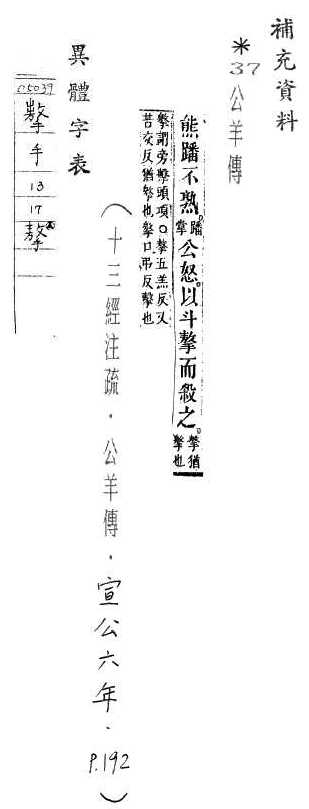 補充資料
*37公羊傳
熊蹯不熟。蹯掌公怒。以斗摮而殺之。摮猶也
謂旁擊頭項○摮五羔反又
苦交反猶擊也口弔反擊也
(十三經注疏．公羊傳．宣公六年．P.192)
異體字表
C5039
手
13
17